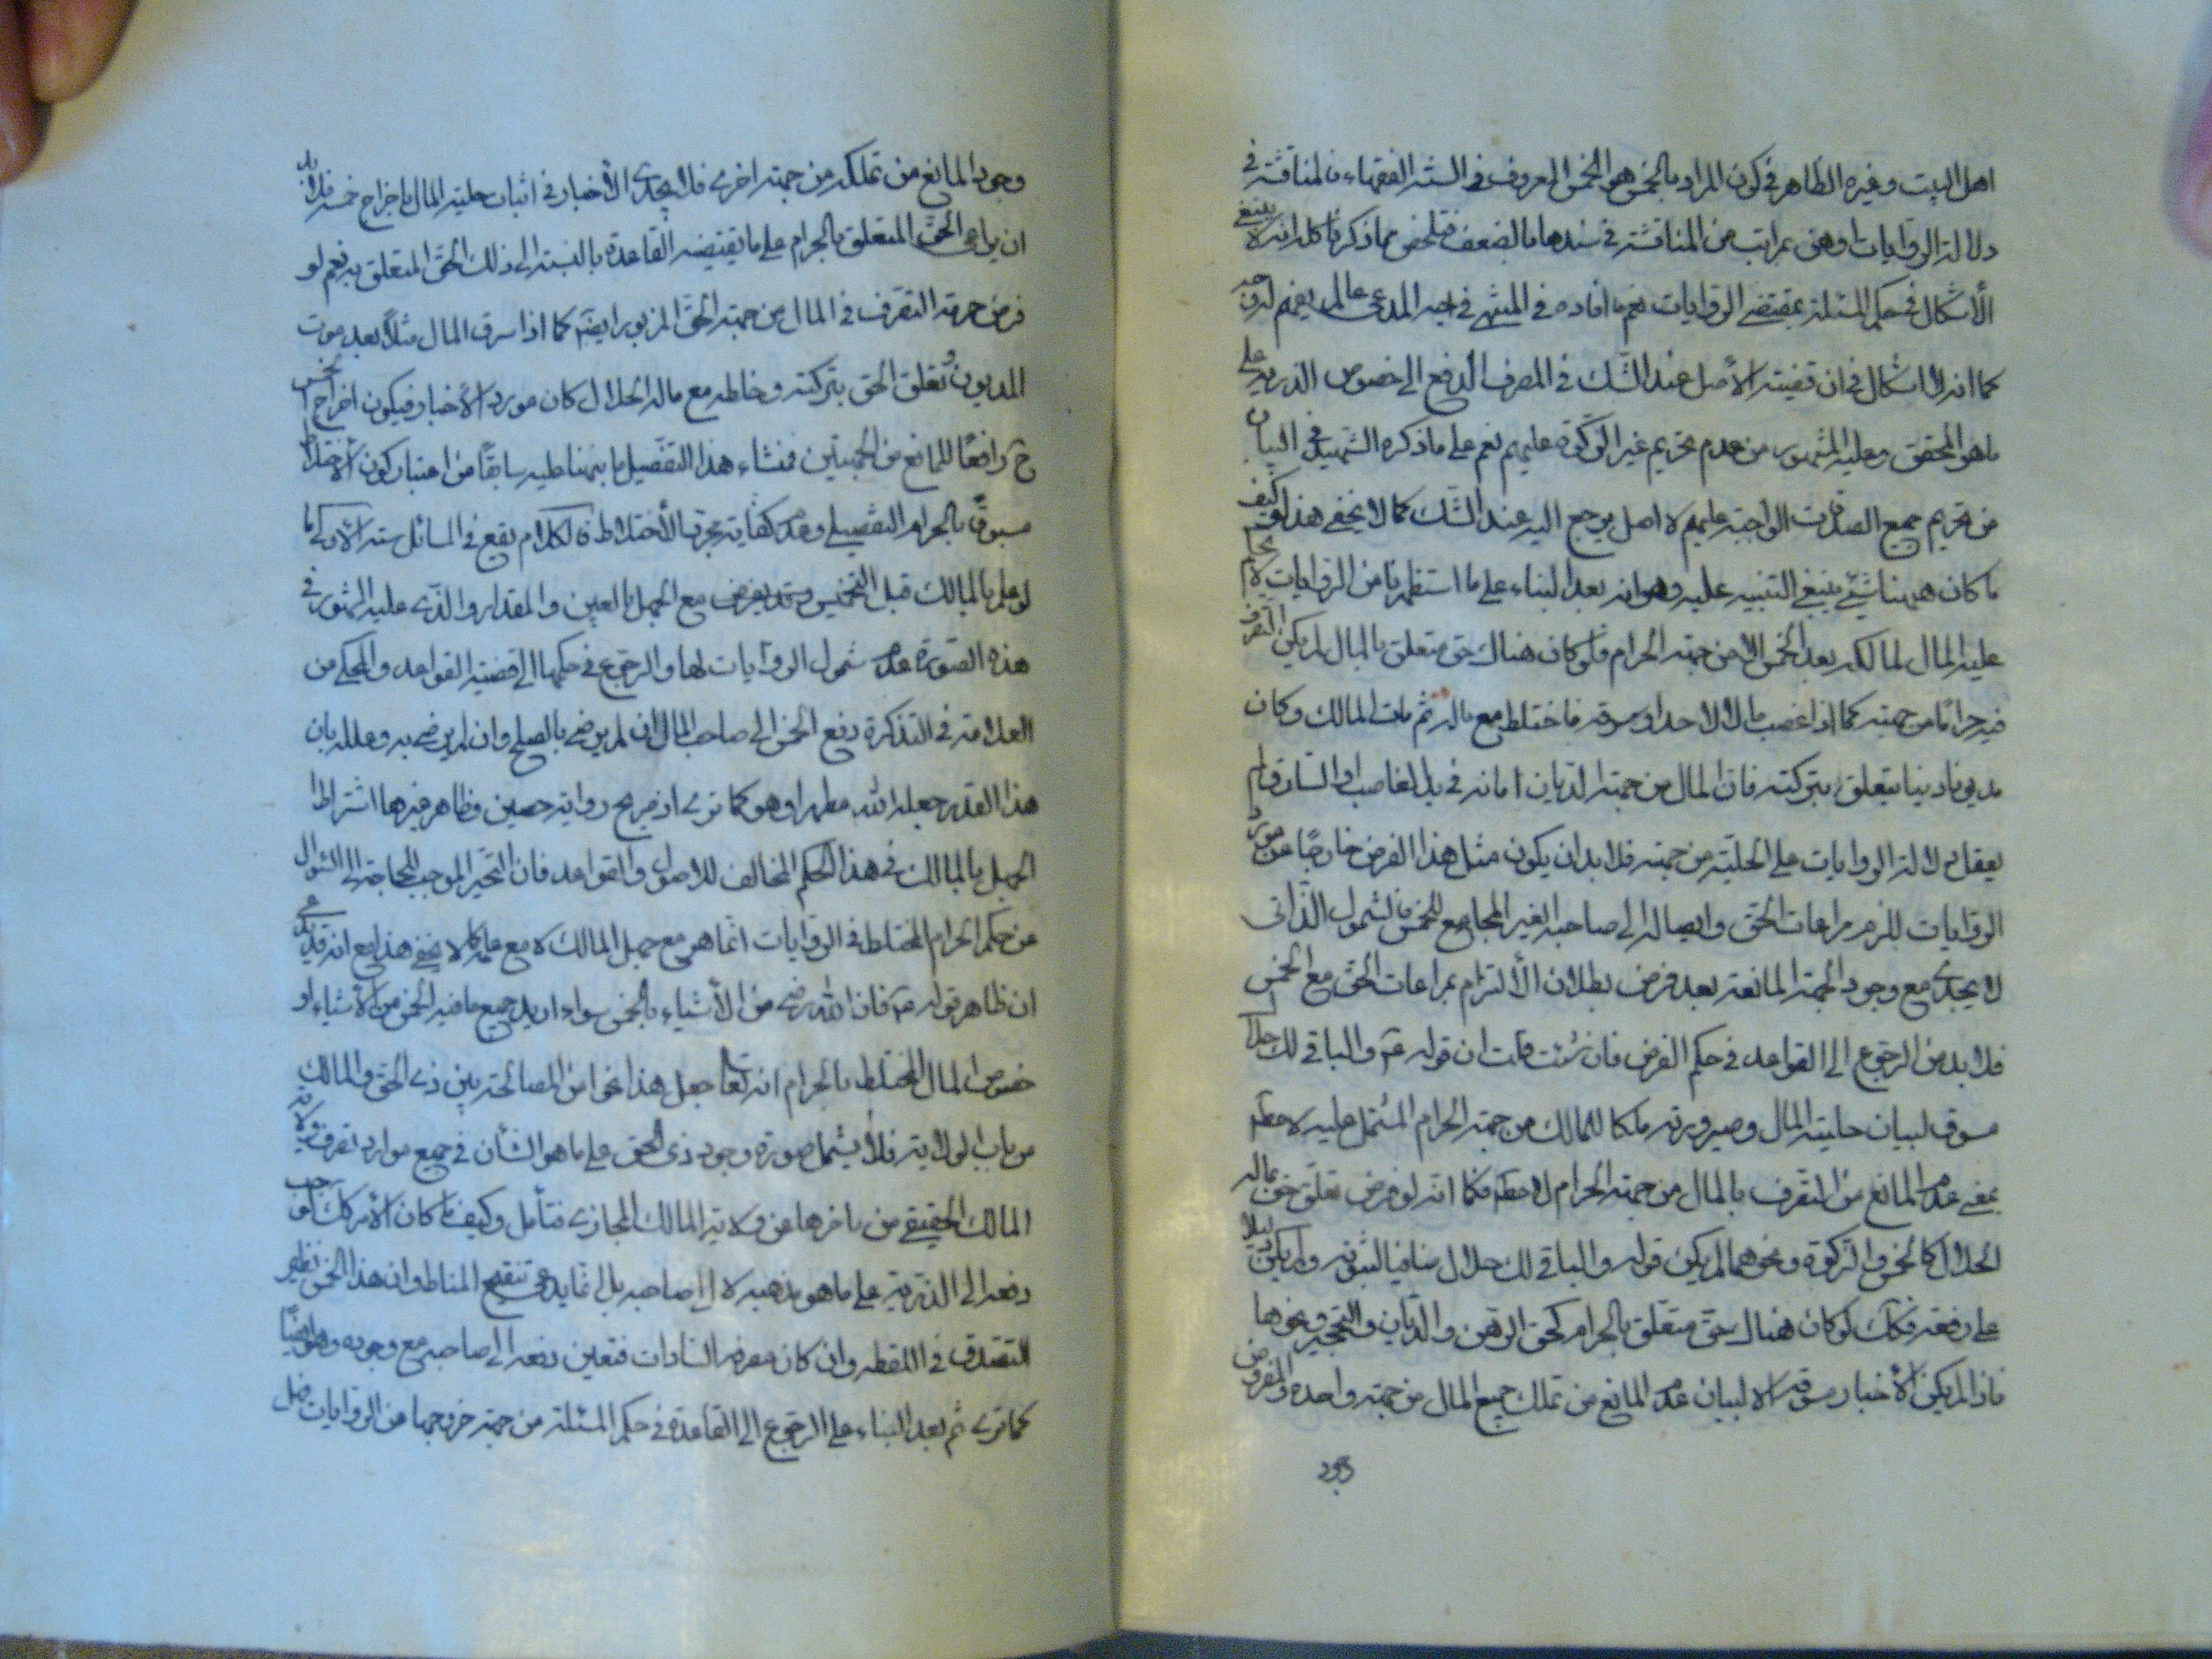 اهل البيت وغيره الظاهر في كون المراد بالخمس هو الخمس المعروف في السنة الفقهاء فالمناقشة في
دلالة الروايات اوهن بمراتب من المناقشة في سندها بالضعف فتلخص مما ذكرنا كله انه لا ينبغي
الأشكال في حكم المسئلة بمقتضى الروايات نعم ما افاده في المنتهى في المدعى لم يفهم له وجه
كما انه لا اشكال في ان قضية الأصل عند الشك في المصرف الدفع الى خصوص الذرية على
ما هو المحقق وعليه المشهور من عدم تحريم غير الزكوة عليهم نعم على ما ذكره الشهيد في البيان
من تحريم جميع الصدقات الواجبة عليهم لا اصل يرجع اليه عند الشك كما لا يخفى هذا
ما كان هيهنا شئ ينبغي التنبيه عليه وهو انه بعد البناء على ما استظهرنا من الروايات
عليه المال لمالكه بعد الخمس الا من جهة الحرام فلو كان هناك حق متعلق بالمال لم يكن التصرف
فيه حراما من جهته كما اذا غصب مالا لاحد او سرقه فاختلط مع ماله ثم مات المالك وكان
مديونا دينا يتعلق بتركته فان المال من جهة الديان امانة في يد الغاصب او السارق لم
يعقل دلالة الروايات على الحلية من جهته فلا بد ان يكون مثل هذا الفرض خارجا عن مورد
الروايات للزوم مراعات الحق وايصاله الى صاحبه الغير المجامع للخمس فالشمول الذاتى
لا يجدى مع وجود الجهة المانعة بعد فرض بطلان الألتزام بمراعات الحق مع الخمس
فلا بد من الرجوع الى القواعد في حكم الفرض فان شئت قلت ان قوله ع والباقى لك حلال
مسوق لبيان حلية المال وصيرورته ملكا للمالك من جهة الحرام المشتمل عليه لا مطلقا
بمعنى عدم المانع من التصرف بالمال من جهة الحرام لا مطلقا فكما انه لو فرض تعلق حق بماله
الحلال كالخمس والزكوة ونحوهما لم يكن قوله والباقى لك حلال منافيا لثبوته ولم يكن دليلا
على رفعه فكك لو كان هناك حق متعلق بالحرام كحق الرهن والديان والتحجير ونحوها
فاذا لم يكن الأخبار مسوقة الا لبيان عدم المانع من تملك جميع المال من جهة واحدة والمفروض
وجود المانع من تملكه من جهة اخرى فلا يجدى الأخبار في اثبات حلية المال باخراج خمسه فلا بد
ان يراعى الحق المتعلق بالحرام على ما يقتضيه القاعدة بالنسبة الى ذلك الحق المتعلق به نعم لو
فرض حرمة التصرف في المال من جهة الحق المزبور ايضا كما اذا سرق المال مثلا بعد موت
المديون وتعلق الحق بتركته وخلطه مع ماله الحلال كان مورد الأخبار فيكون اخراج الخمس
ح رافعا للمانع من الجهتين فمنشاء هذا التفصيل ما نبهنا عليه سابقا من اعتبار كون الأختلاط
مسبوقا بالحرام التفصيلى وعدم كفاية الأختلاط الكلام يقع في المسائل ستة الأولى ما
لو علم بالمالك قبل التخميس وقد يفرض مع الجهل بالعين والمقدار والذى عليه المشهور في
هذه الصورة عدم شمول الروايات لها والرجوع في حكمها الى قضية القواعد والمحكى من
العلامة في التذكرة دفع الخمس الى صاحب المال ان لم يرض بالصلح وان لم يرض به وعلله بان
هذا القدر جعله الله مطهرا وهو كما ترى اذ صريح رواية حصين وظاهر غيرها اشتراط
الجهل بالمالك في هذا الحكم المخالف للاصول والقواعد فان التحير الموجب للحاجة الى السؤال
عن حكم الحرام المختلط في الروايات انما هو مع جهل المالك لا مع علمه كما لا يخفى هذا مع انه قد يدعى
ان ظاهر قوله ع فان الله رضى من الأشياء بالخمس سواء اريد جميع ما فيه الخمس من الأشياء او
خصوص المال المختلط بالحرام انه تعا جعل هذا نحوا من المصالحة بين ذى الحق والمالك
من باب الولاية فلا يشمل صورة وجود ذى الحق على ما هو الشأن في جميع موارد تصرف ولاية
المالك الحقيقى من تاخرها عن ولاية المالك المجازى فتأمل وكيف ما كان الأمر كك لو وجب
دفعه الى الذرية على ما هو مذهبه لا الى صاحبه بل انما يدعى تنقيح المناط وان هذا الخمس نظير
التصدق في اللقطة وان كان مصرفه السادات فتعين دفعه الى صاحبه مع وجوده وهو ايضا
كما ترى ثم بعد البناء على الرجوع الى القاعدة في حكم المسئلة من جهة خروجها من الروايات فهل